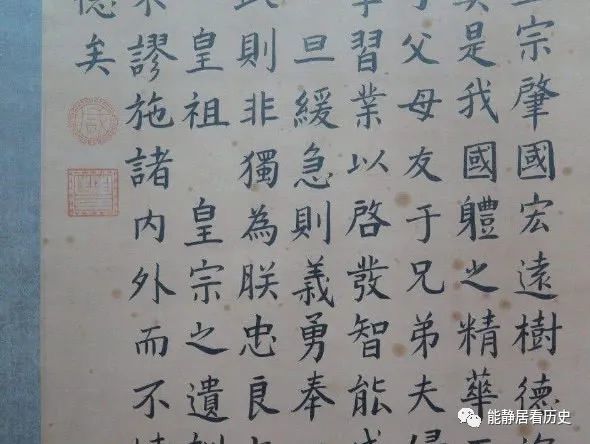 宗肇國宏遠樹德
是我國體之精華
父母友于兄弟夫
習業以啓發智能
旦緩急則義勇奉
則非獨為朕忠良
皇祖 皇宗之遺
謬施諸內外而不
矣
能静居看历史